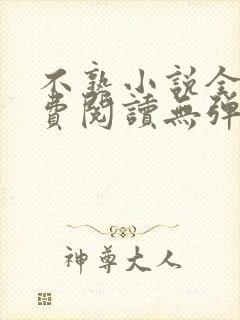 不熟小說全
費閱讀無彈
神尊大人